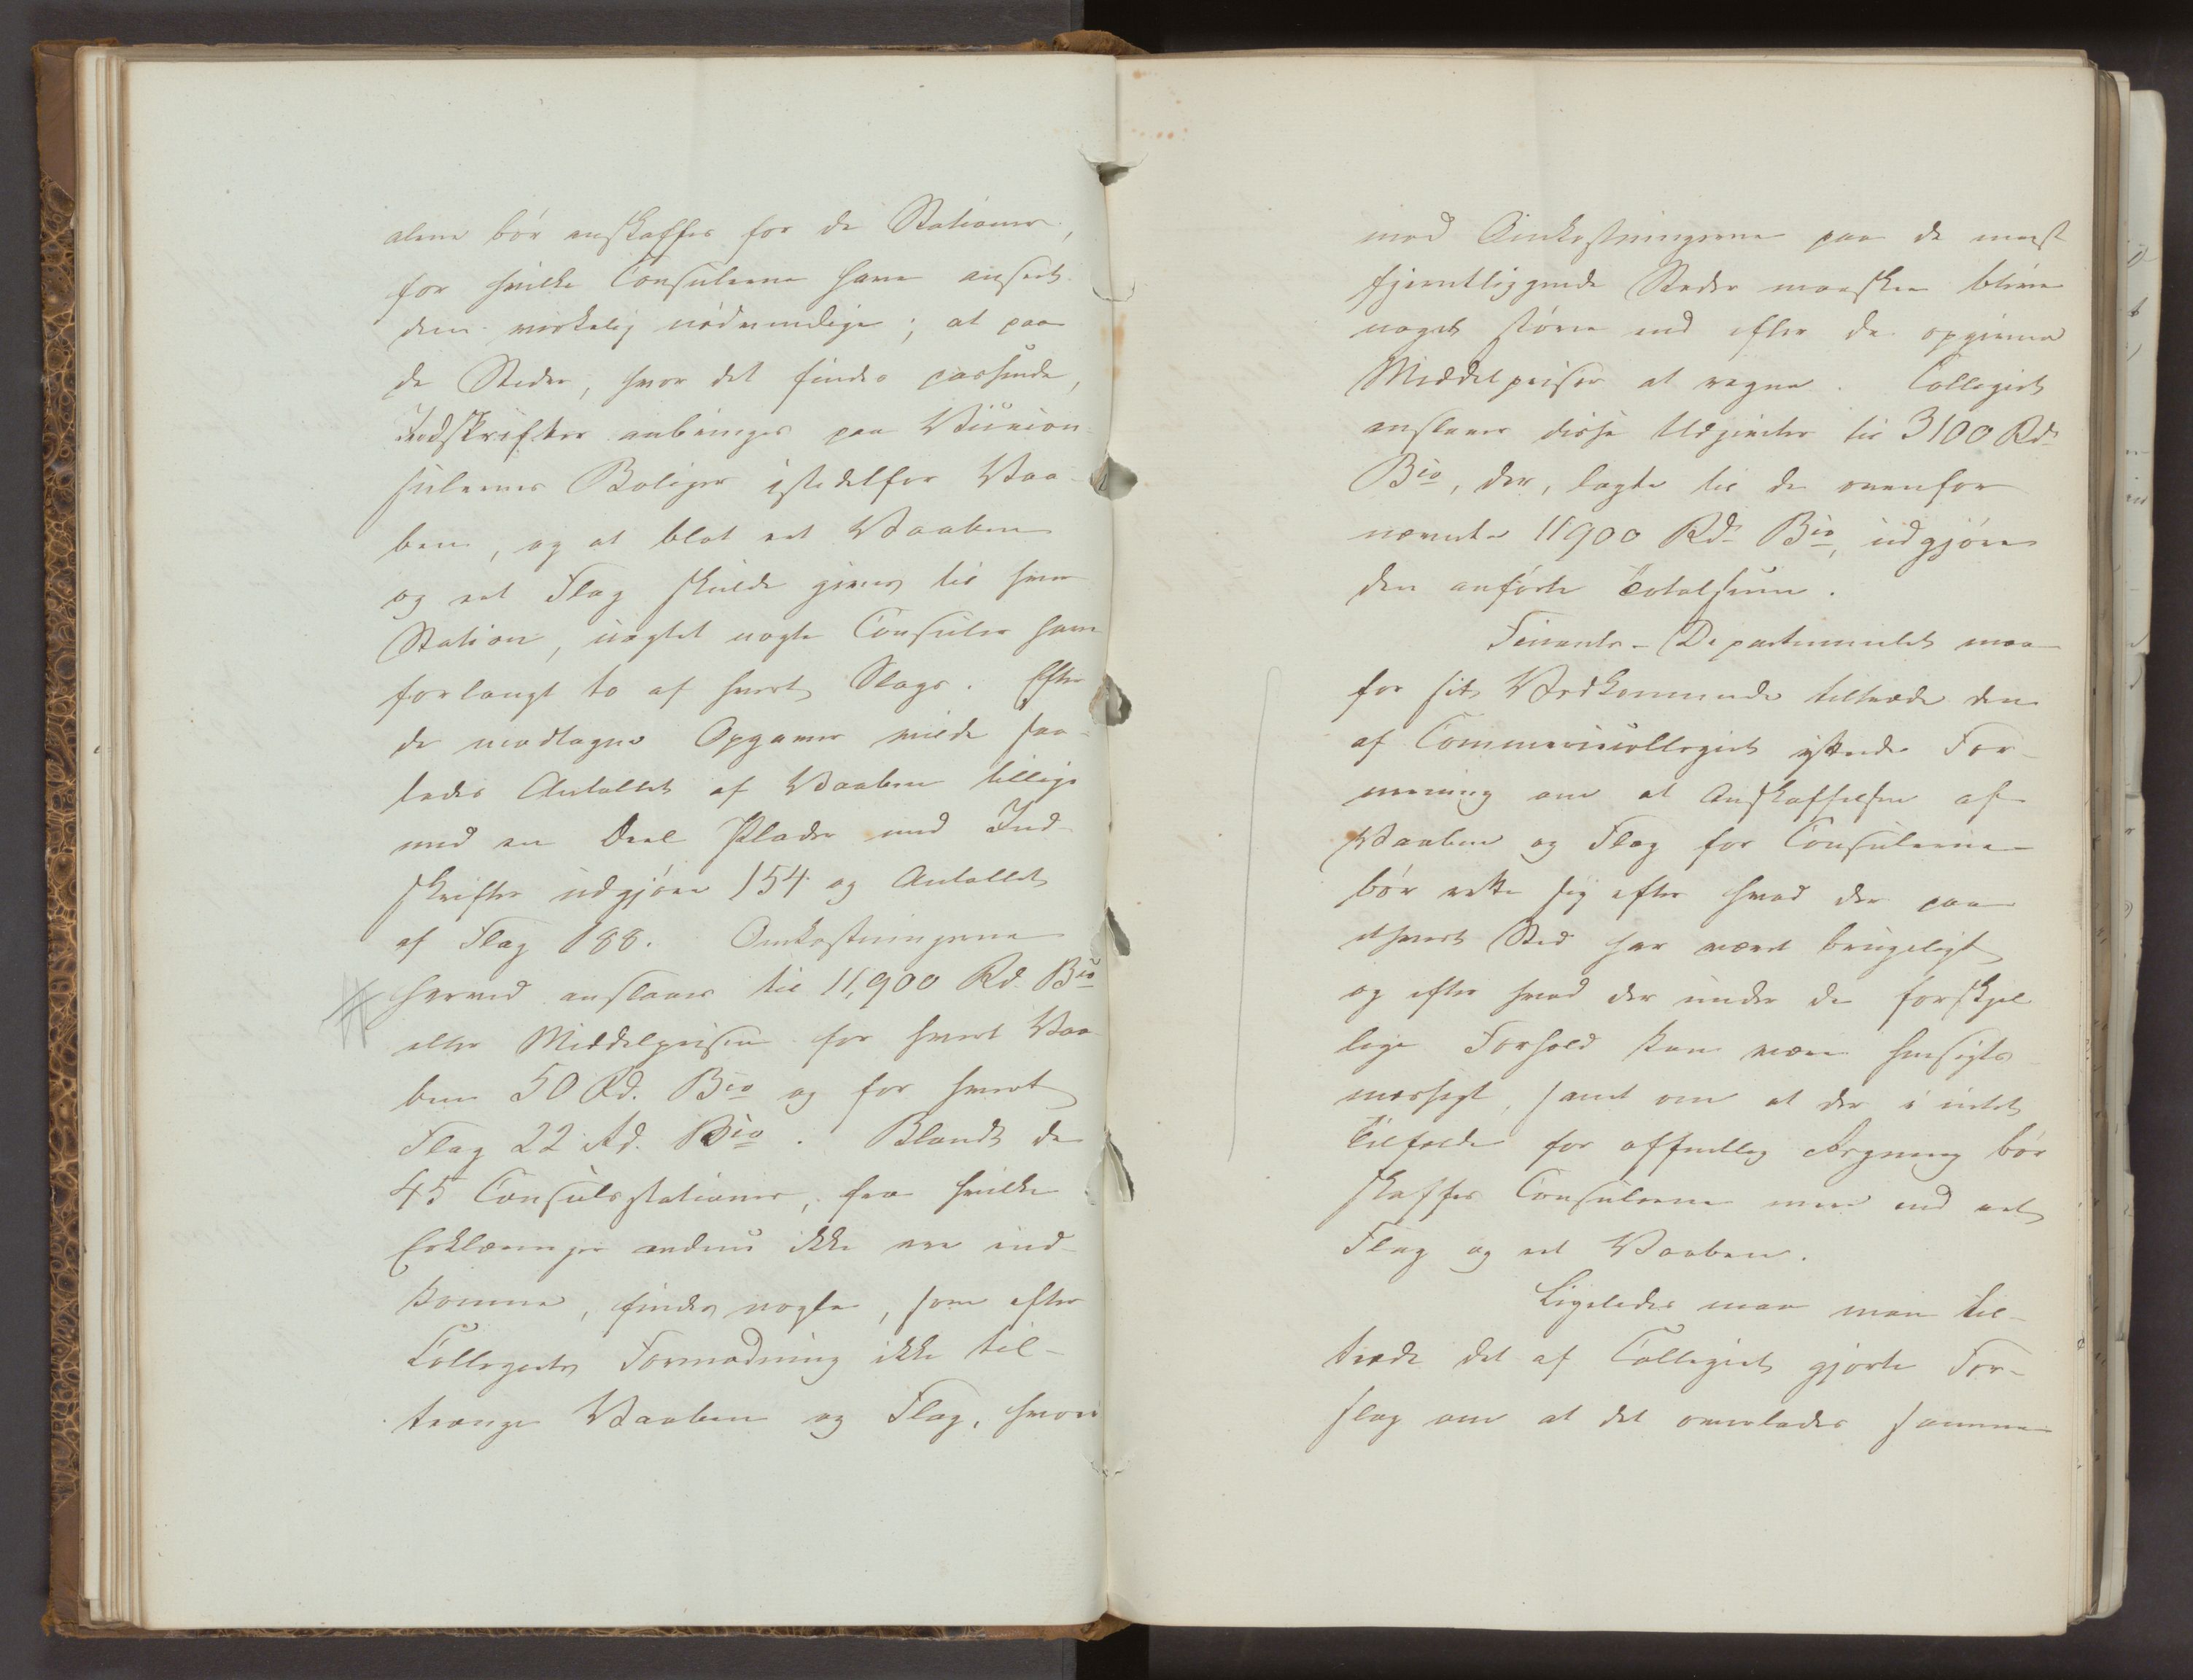 alene bör anskaffes for de Stationer,
for hvilke Consulerne have anseet
dem virkelig nödvendige; at paa
de Steder, hvor det findes passende,
Indskrifter anbringes paa Viicecon-
sulernes Boliger istedetfor Vaa-
ben, og at blot eet Vaaben
og eet Flag skulde gives til hver
Station, uagtet nogle Consuler have
forlangt to af hvert Slags. Efter
de modtagne Opgaver vilde saa-
ledes Antallet af Vaaben tillige
med en Deel Plader med Ind-
skrifter udgjöre 154 og Antallet
af Flag 188. Omkostningerne
herved anslaaes til 11,900 Rd. Bco
eller Middelprisen for hvert Vaa-
ben 50 Rd. Bco og for hvert
Flag 22 Rd. Bco. Blandt de
45 Consulsstationer, fra hvilke
Erklæringer endnu ikke ere ind-
komne, findes nogle, som efter
Collegiets Formodning ikke til-
trænge Vaaben og Flag, hvori-
mod Omkostningerne paa de meest
fjerntliggende Steder maaskee blive
noget större end efter de opgivne
Middelpriser at regne. Collegiet
anslaaer disse Udgivter til 3100 Rd.
Bco, der, lagte til de ovenfor
nævnte 11900 Rd. Bco, udgjöre
den anförte Totalsum.
Finants-Departementet maa
for sit Vedkommende tiltræde den
af Commercecollegiet yttrede For-
mening om at Anskaffelsen af
Vaaben og Flag for Consulerne
bör rette sig efter hvad der paa
ethvert Sted har været brugeligt
og efter hvad der under de forskjel-
lige Forhold kan være hensigts-
mæssigt, samt om at der i intet
Tilfælde for offentlig Regning bör
skaffes Consulerne mere end eet
Flag og eet Vaaben.
Ligeledes maa man til-
træde det af Collegiet gjorte For-
slag om at det overlades samme